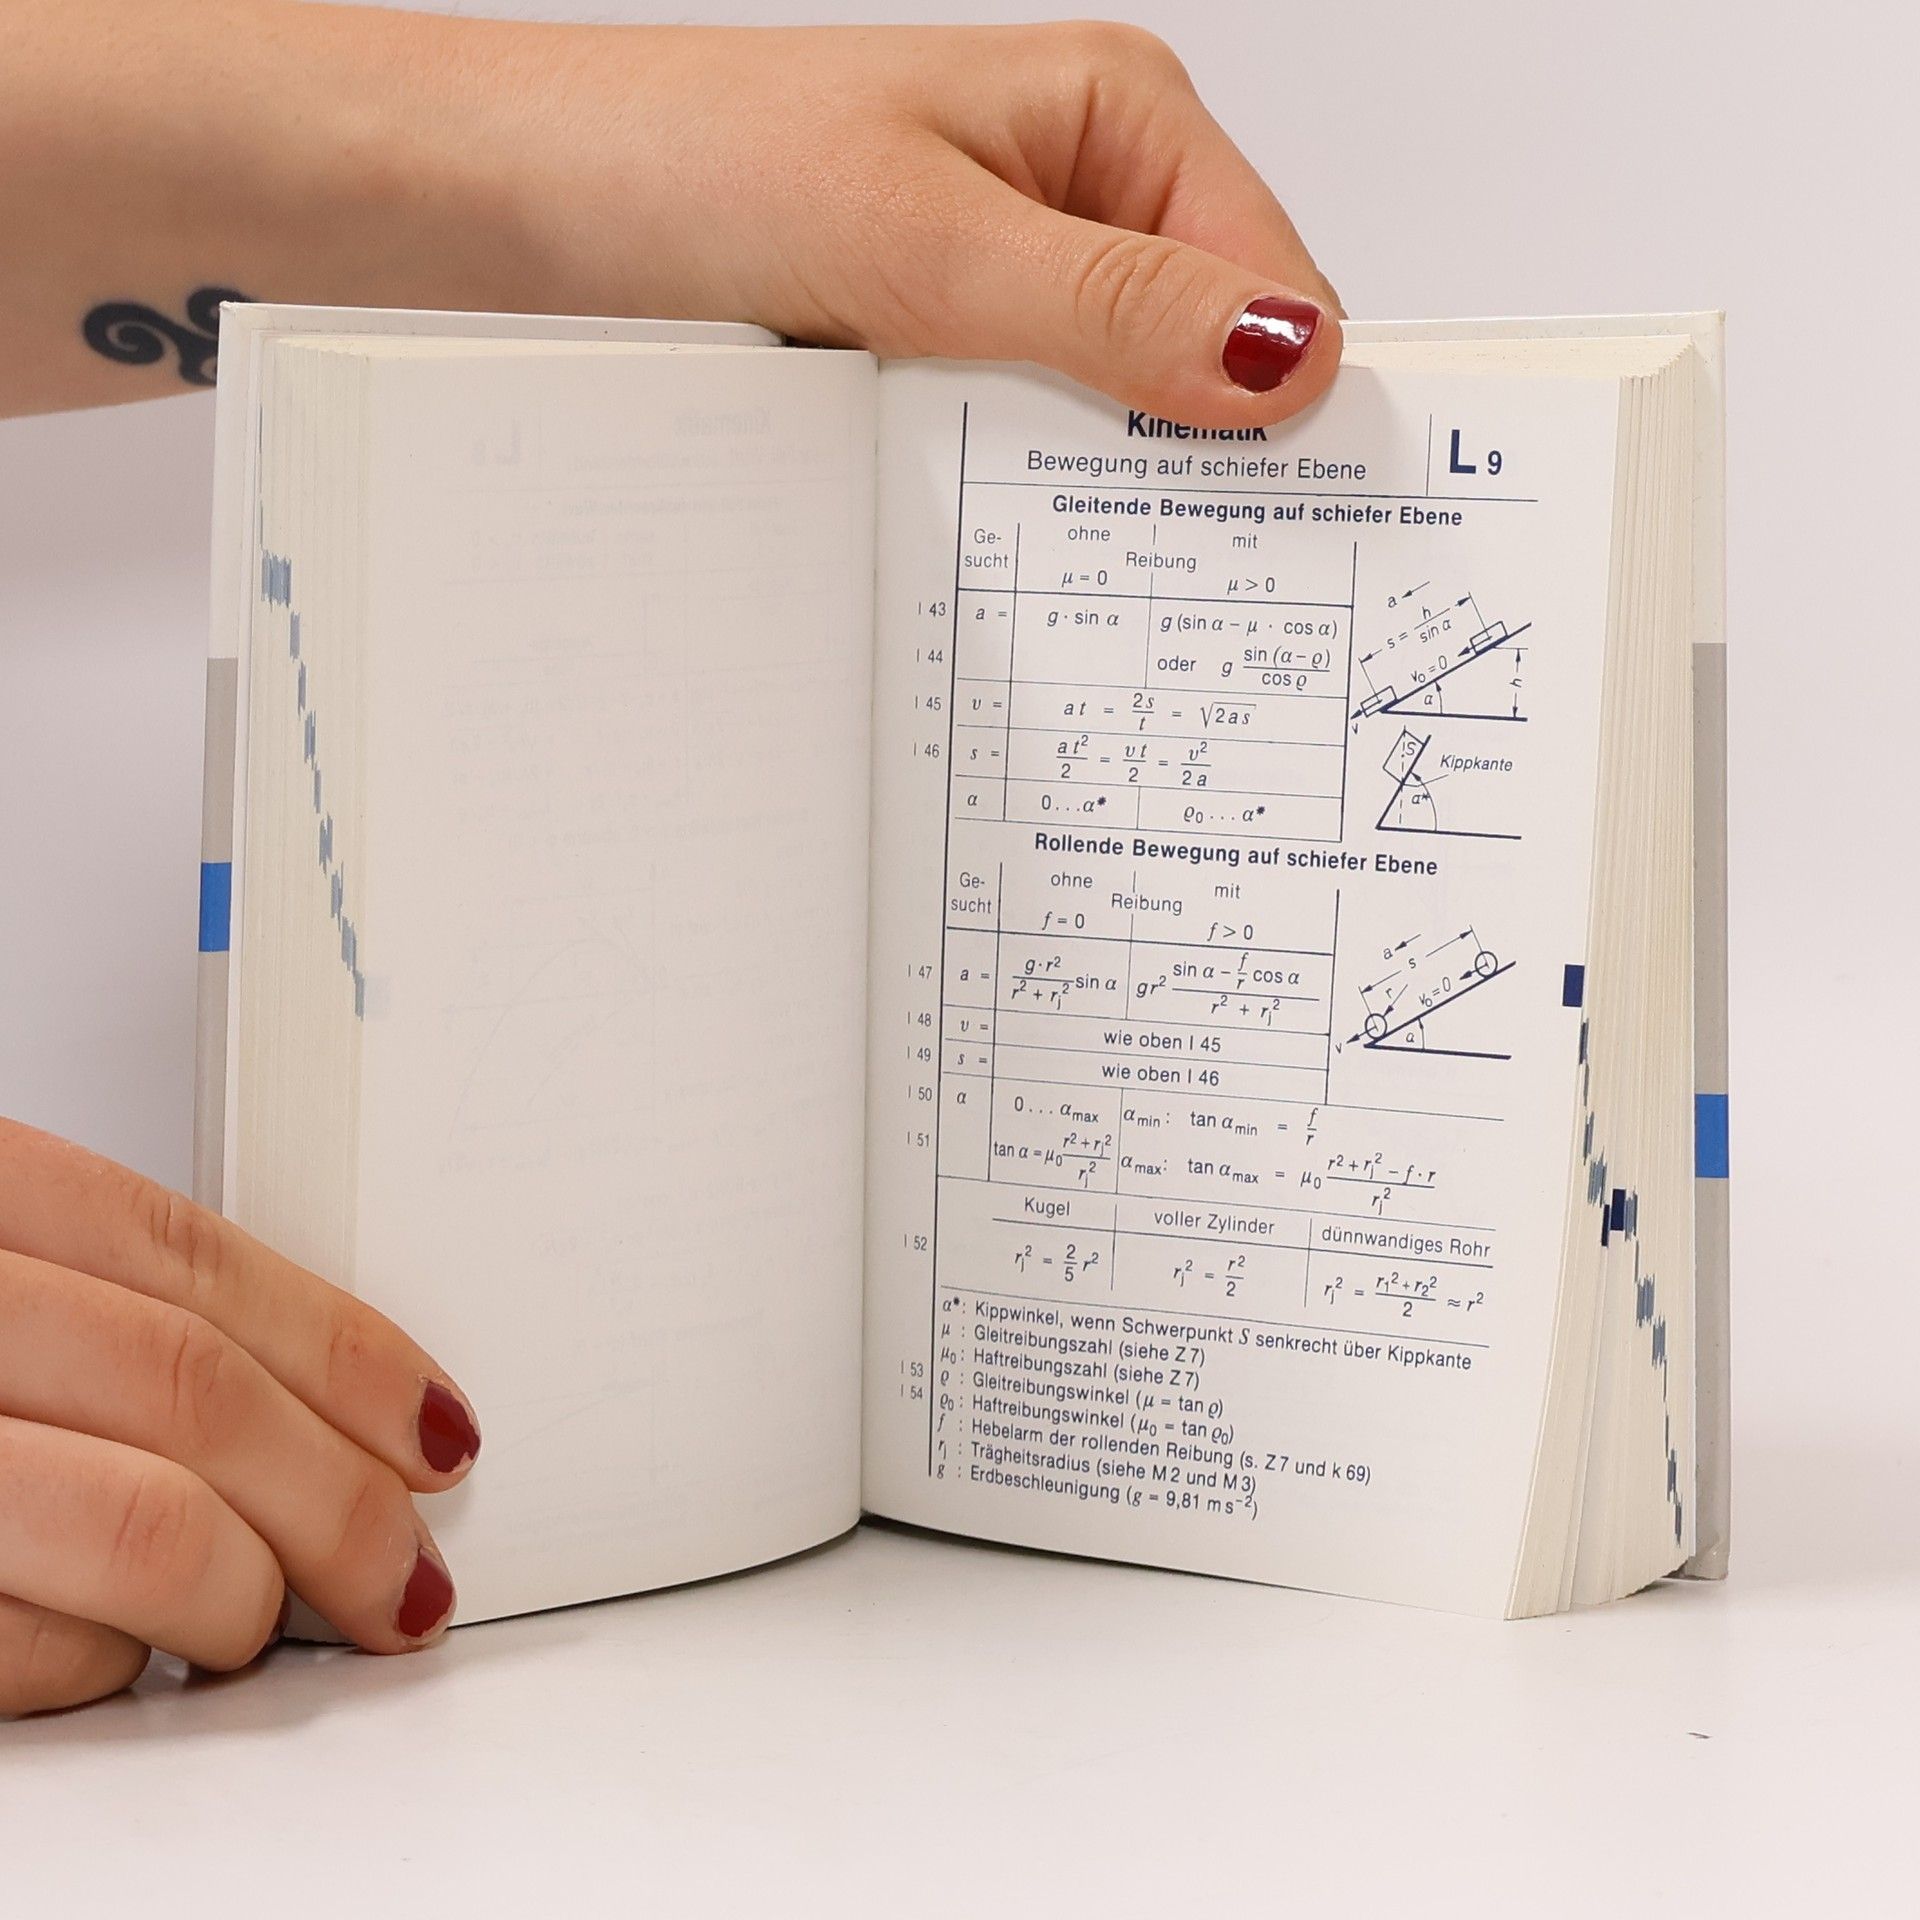 Kinematik
Bewegung auf schiefer Ebene
L 9
Gleitende Bewegung auf schiefer Ebene
Ge-
sucht
ohne | mit
Reibung
μ = 0 μ > 0
l 43 a = g · sin α g (sin α – μ · cos α)
l 44 oder g sin (α – ϱ) / cos ϱ
l 45 v = a t = 2 s / t = √2 a s
l 46 s = a t² / 2 = v t / 2 = v² / 2 a
α 0...α* ϱ₀...α*
a
s = h / sin α
v₀ = 0
h
α
v
S
Kippkante
α*
Rollende Bewegung auf schiefer Ebene
Ge-
sucht
ohne | mit
Reibung
f = 0 f > 0
l 47 a = g · r² / r² + rⱼ² sin α gr² sin α – f/r cos α / r² + rⱼ²
l 48 v = wie oben l 45
l 49 s = wie oben l 46
a
s
r
v₀ = 0
v
α
l 50 α 0...α max α min: tan α min = f / r
l 51 tan α = μ₀ r² + rⱼ² / rⱼ² α max: tan α max = μ₀ r² + rⱼ² – f · r / rⱼ²
Kugel voller Zylinder dünnwandiges Rohr
l 52 rⱼ² = 2/5 r² rⱼ² = r² / 2 rⱼ² = r₁² + r₂² / 2 ≈ r²
α*: Kippwinkel, wenn Schwerpunkt S senkrecht über Kippkante
μ : Gleitreibungszahl (siehe Z 7)
μ₀ : Haftreibungszahl (siehe Z 7)
l 53 ϱ : Gleitreibungswinkel (μ = tan ϱ)
l 54 ϱ₀ : Haftreibungswinkel (μ₀ = tan ϱ₀)
f : Hebelarm der rollenden Reibung (s. Z 7 und k 69)
rⱼ : Trägheitsradius (siehe M 2 und M 3)
g : Erdbeschleunigung (g = 9,81 m s⁻²)